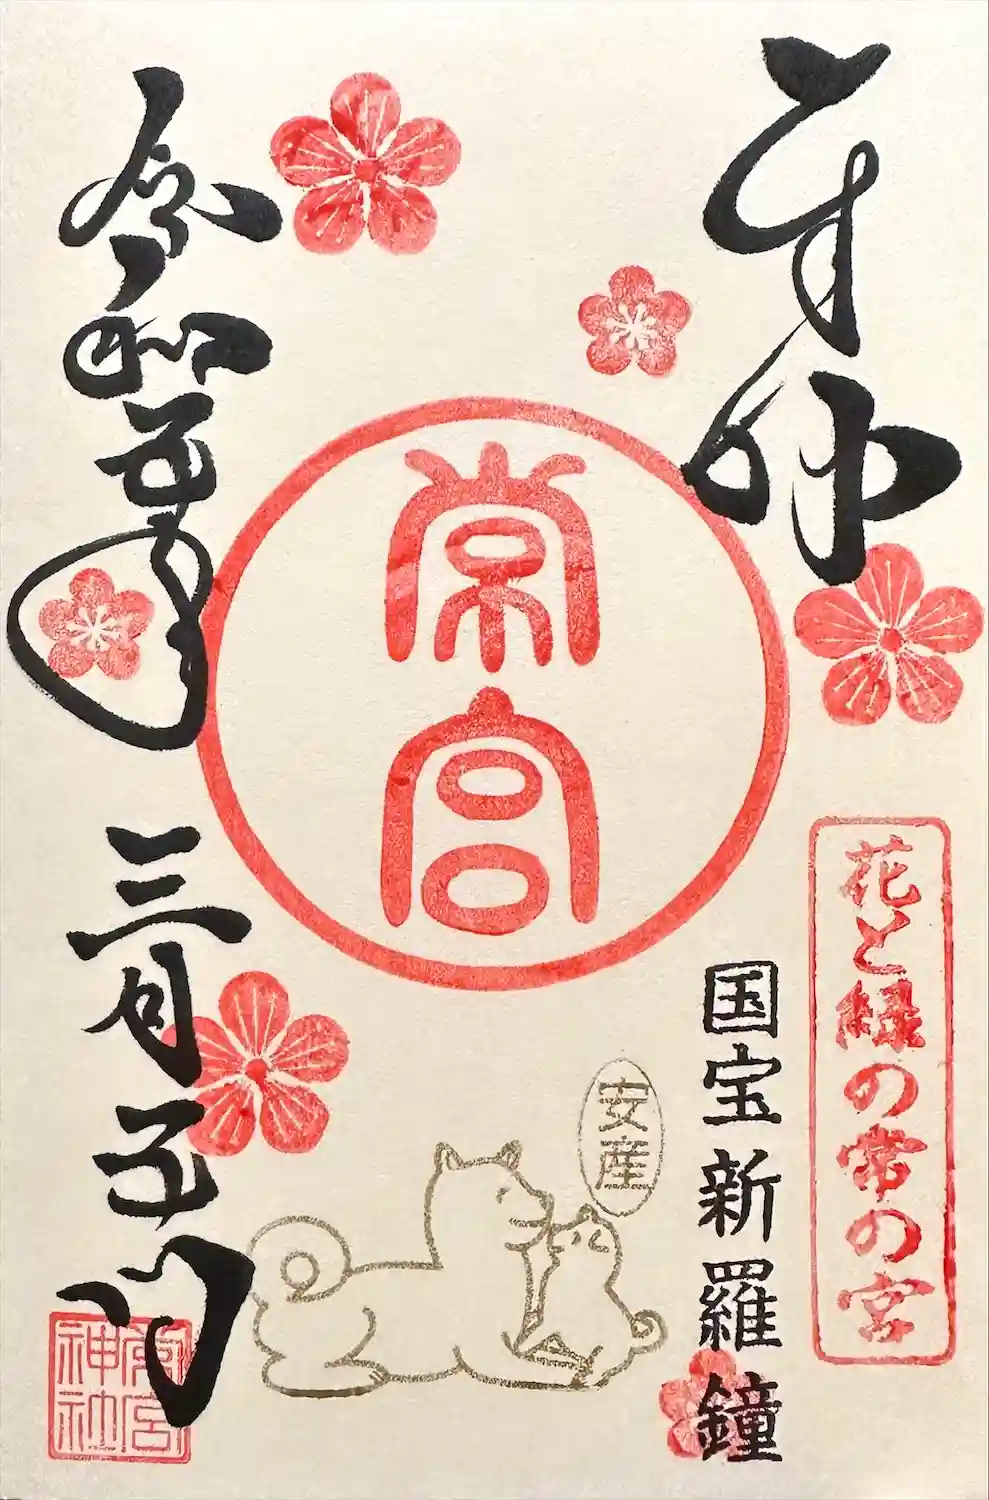 奉拝
花と緑の常の宮
国宝新羅鐘
常宮
安産
令和五年三月五日
常宮
神社